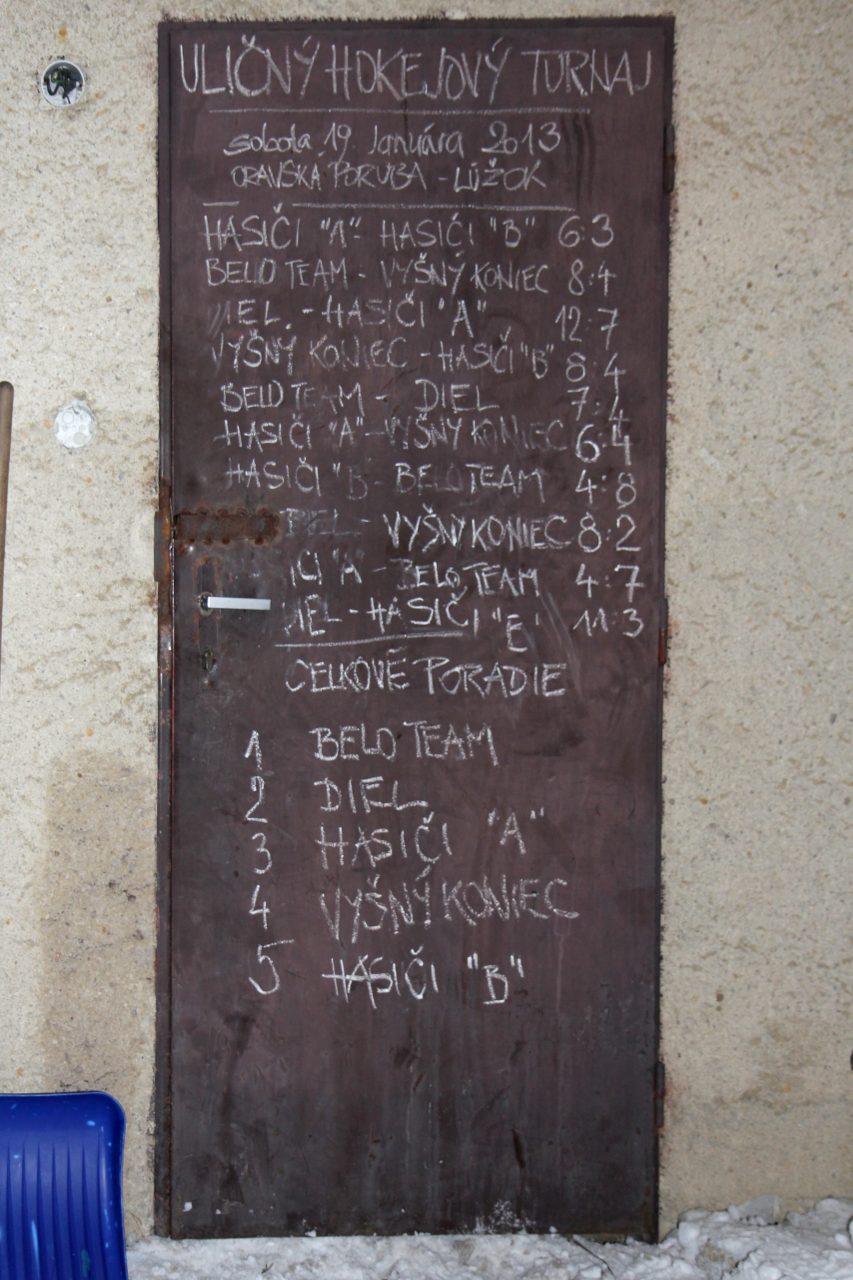 ULIČNÝ HOKEJOVÝ TURNAJ
sobota 19. Januára 2013
ORAVSKÁ PORUBA - LÚŽOK
HASIČI "A" - HASIČI "B" 6:3
BELO TEAM - VYŠNÝ KONIEC 8:4
DIEL. - HASIČI "A" 12:7
VYŠNÝ KONIEC - HASIČI "B" 8:4
BELO TEAM - DIEL 7:4
HASIČI "A" - VYŠNÝ KONIEC 6:4
HASIČI "B - BELO TEAM 4:8
DIEL - VYŠNÝ KONIEC 8:2
HASIČI "A" - BELO TEAM 4:7
DIEL - HASIČI "B" 11:3
CELKOVÉ PORADIE
1 BELO TEAM
2 DIEL
3 HASIČI "A"
4 VYŠNÝ KONIEC
5 HASIČI "B"